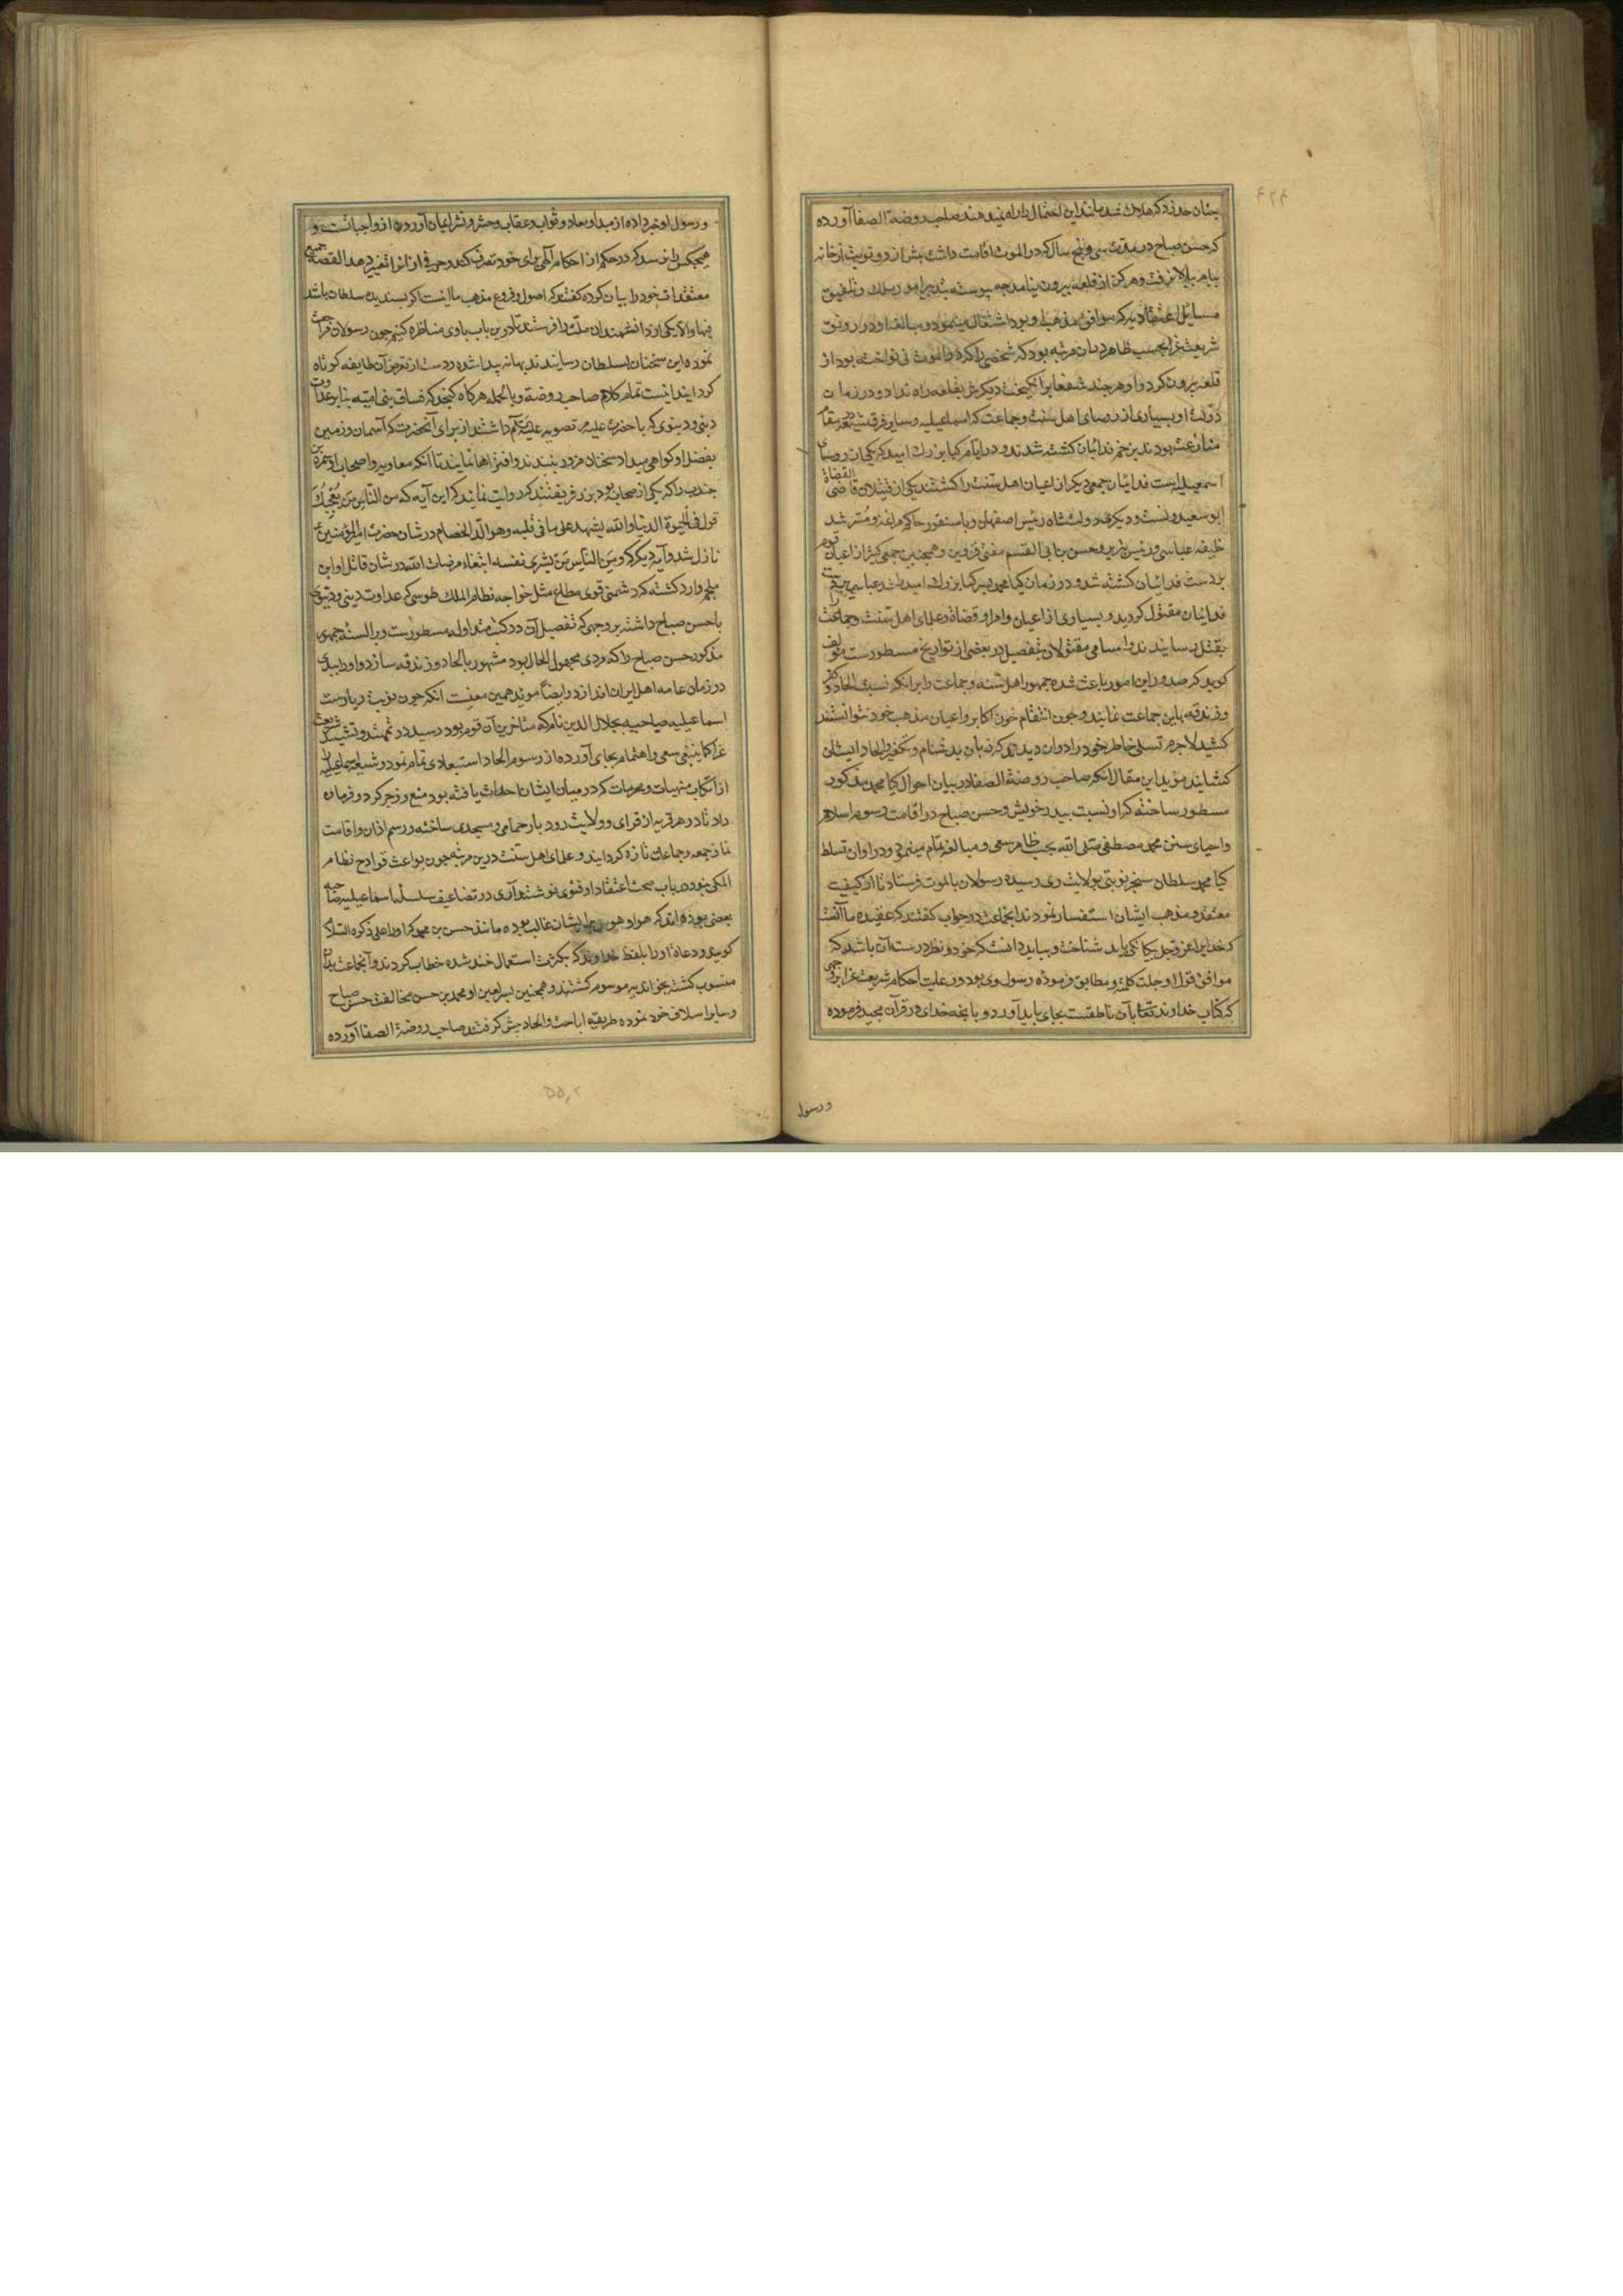 ۴۳۴
که حسن صباح در مدت سی و پنج سال که در الموت اقامت داشت بیش از دو نوبت از خانه
ببام بالا نرفت و هرگز از قلعه بیرون نیامد چه پیوسته بتدبیر امور ملک و تلفیق
مسایل اعتقادیه که موافق مذهب او بود اشتغال مینمود و مبالغه او در رونق
شریعت غرا بحسب ظاهر بدان مرتبه بود که شخصی را که در الموت نی نواخته بود از
قلعه بیرون کرد و هر چند شفعا برانگیخت دیگرش بقلعه راه نداد و در زمان
دولت او بسیاری از رؤسای اهل سنت و جماعت که اسماعیلیه و سایر فرق شیعه در مقام
منازعت بودند بزخم فدائیان کشته شدند و در ایام کیا بزرك امید که یکی از رؤسای
اسمعیلیه است فدائیان جمعی دیگر از اعیان اهل سنت را کشتند یکی از قتیلان قاضی القضاة
ابو سعید و دیگری دولتشاه رئیس اصفهان و باسنقور حاکم مراغه و مسترشد
خلیفه عباسی و رئیس تبریز و حسن بن ابی القسم مفتی قزوین و همچنین جمعی کثیر از اعیان قوم
بر دست فدائیان کشته شد و در زمان کیا محمد پسر کیا بزرك امید راشد عباسی بر دست
فدائیان مقتول گردید و بسیاری از اعیان و امرا و قضاة و علمای اهل سنت و جماعت را
بقتل رسانیدند و اسامی مقتولان بتفصیل در بعضی از تواریخ مسطورست مؤلف
گوید که صدور این امور باعث شده جمهور اهل سنه و جماعت را بر آنکه نسبت الحاد و کفر
و زندقه باین جماعت نمایند و چون انتقام خون اکابر و اعیان مذهب خود نتوانستند
کشید لاجرم تسلی خاطر خود را در آن دیدند که زبان بدشنام و تکفیر و الحاد ایشان
گشایند مؤید این مقال آنکه صاحب روضة الصفا در بیان احوال کیا محمد مذکور
مسطور ساخته که او نسبت بپدر خویش و حسن صباح در اقامت رسوم اسلام
و احیای سنن محمد مصطفی صلی الله بحسب ظاهر سعی و مبالغه تمام مینمود و در اوان تسلط
کیا محمد سلطان سنجر نوبتی بولایت ری رسیده رسولان بالموت فرستاد تا از کیفیت
معتقد و مذهب ایشان استفسار نمودند آنجماعت در جواب گفتند که عقیده ما آنست
که خدایرا عز و جل بیگانگی باید شناخت و بباید دانست که خرد و نظر درست آن باشد که
موافق قول او جلت کلمته و مطابق فرموده رسول وی بود و رعایت احکام شریعت غرا بر وجهی
که کتاب خداوند تعالی بآن ناطقست بجای باید آورد و بآنچه خدای در قرآن مجید فرموده
و رسول
و رسول او خبر داده از مبدأ و معاد و ثواب و عقاب و حشر و نشر ایمان آوردن از واجباتست و
هیچکس را نرسد که در حکم از احکام الهی برای خود تصرف کند و حرفی از آنرا تغییر دهد القصه جمیع
معتقدات خود را بیان کرده گفتند که اصول و فروع مذهب ما اینست اگر پسندیده سلطان باشد
فبها و الا یکی از دانشمندان ملت را فرستند تا درین باب با وی مناظره کنیم چون رسولان مراجعت
نموده این سخنان بسلطان رسانیدند بهانه پیدا شده دست از تعرض آن طایفه کوتاه
گردانید اینست تمام کلام صاحب روضة و بالجمله هرگاه گنجد که فساق بنی امیه بنا بر عداوت
دینی و دنیوی که با حضرت داشتند از برای آنحضرت که آسمان و زمین
بفضل او گواهی میداد سخنان مزور بندند و افتراها نمایند تا آنکه معاویه و اصحاب او سمرة بن
جندب را که یکی از صحابه بود بزر فریفتند که روایت نماید که این آیه که من الناس من یعجبك
قوله فی الحیوة الدنیا و الله یشهد علی ما فی قلبه و هو الد الخصام در شان حضرت امیر المؤمنین
نازل شد و آیه دیگر که و من الناس من یشری نفسه ابتغاء مرضات الله در شان قاتل او ابن
ملجم وارد گشته گر دشمنی قوی مطاع مثل خواجه نظام الملك طوسی که عداوت دینی و دنیوی
با حسن صباح داشته بر وجهی که تفصیل آن در کتب متداوله مسطورست و بر السنه جمهور
مذکور حسن صباح را که مردی مجهول الحال بود مشهور بالحاد و زندقه سازد و او را ببدی
در زبان عامه اهل ایران اندازد و ایضاً مؤید همین معنیست آنکه چون نوبت ریاست
اسماعیلیه صباحیه بجلال الدین نام که متأخرین آن قوم بود رسید در تمهید و تشیید شریعت
غرا کما ینبغی سعی و اهتمام بجای آورده از رسوم الحاد استبعادی تمام نمود و شیعه اسماعیلیه را
از ارتکاب منهیات و محرمات که در میان ایشان احداث یافته بود منع و زجر کرد و فرمان
داد تا در هر قریه از قرای و ولایت رودبار حمامی و مسجدی ساخته و رسم اذان و اقامت
نماز جمعه و جماعات تازه گردانید و علمای اهل سنت درین مرتبه چون بواعث قوادح نظام
الملکی نبود در باب صحت اعتقاد او فتوی نوشتند آری در تضاعیف سلسله اسماعیلیه صباحیه
بعضی بوده اند که هوا و هوس بر ایشان غالب بوده مانند حسن بن محمد که او را علی ذکره السلام
گویند و دعاة او را بلفظ خداوند که بکثرت استعمال خند شده خطاب کردند و آنجماعت بدان
منسوب گشته بخواندیه موسوم گشتند و همچنین پسر لعین او محمد بن حسن مخالفت حسن صباح
و سایر اسلاف خود نموده طریقه اباحت و الحاد پیش گرفتند صاحب روضة الصفا آورده